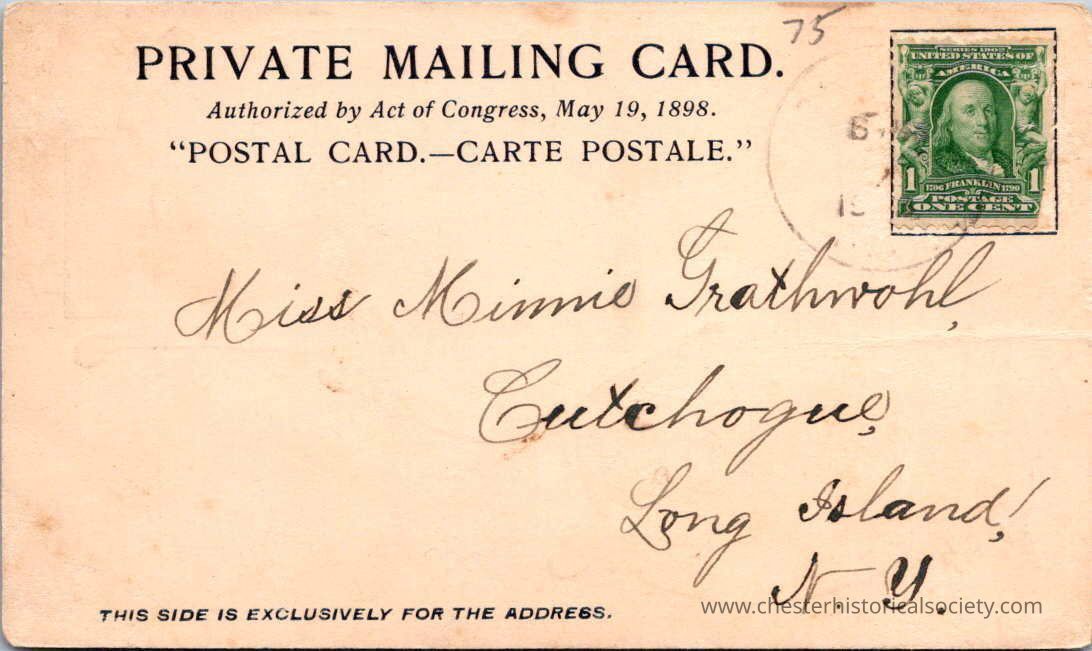 75
PRIVATE MAILING CARD.
Authorized by Act of Congress, May 19, 1898.
"POSTAL CARD.—CARTE POSTALE."
SERIES 1902
UNITED STATES OF
AMERICA
1 1706 FRANKLIN 1790 1
POSTAGE
ONE CENT
Miss Minnie Grathwohl,
Cutchogue,
Long Island,
N. Y.
www.chesterhistoricalsociety.com
THIS SIDE IS EXCLUSIVELY FOR THE ADDRESS.